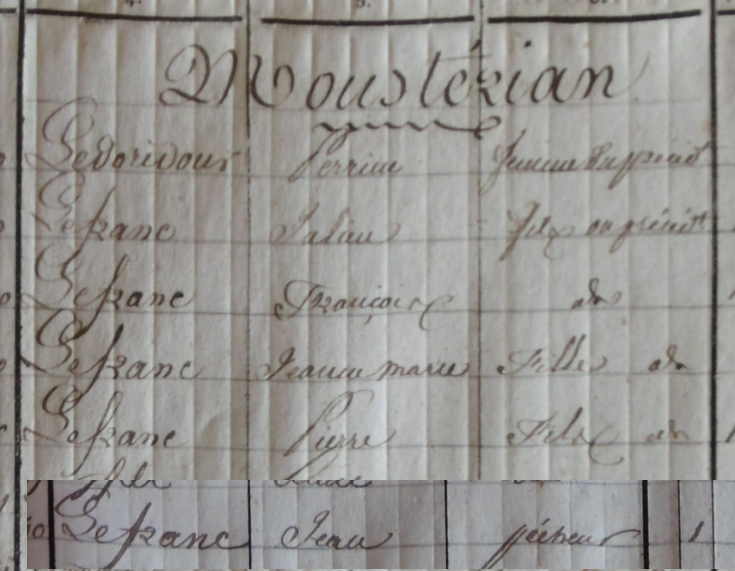 Moustérian
Ledoridour Perrine femme du précédt
Lefranc Julien fils du précédt
Lefranc François do
Lefranc Jeanne marie Fille do
Lefranc Pierre Fils do
Lefranc Jean pécheur 1